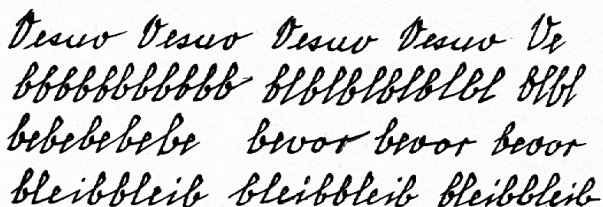 Vesuv Vesuv Vesuv Vesuv Ve
bbbbbbbbbbb blblblblblbl blbl
bebebebebe bevor bevor bevor
bleibbleib bleibbleib bleibbleib